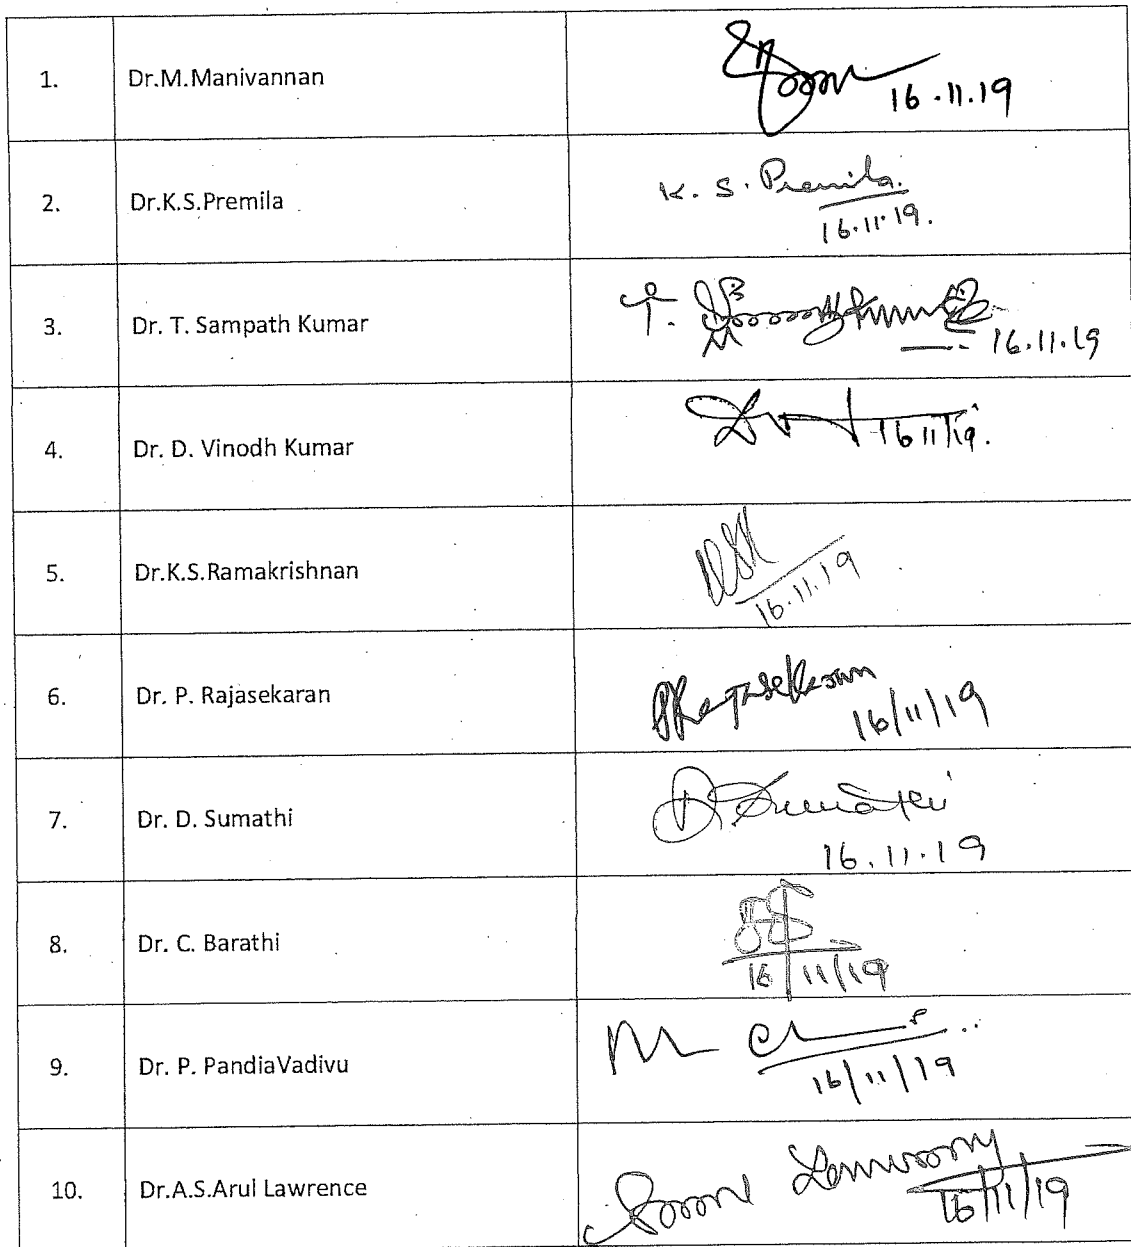 1. Dr.M.Manivannan 16.11.19
2. Dr.K.S.Premila K. S. Premila. 16.11.19.
3. Dr. T. Sampath Kumar T. 16.11.19
4. Dr. D. Vinodh Kumar 16/11/19.
5. Dr.K.S.Ramakrishnan 16.11.19
6. Dr. P. Rajasekaran PRajasekaran 16/11/19
7. Dr. D. Sumathi D. Sumathi 16.11.19
8. Dr. C. Barathi 16/11/19
9. Dr. P. PandiaVadivu 16/11/19
10. Dr.A.S.Arul Lawrence 16/11/19